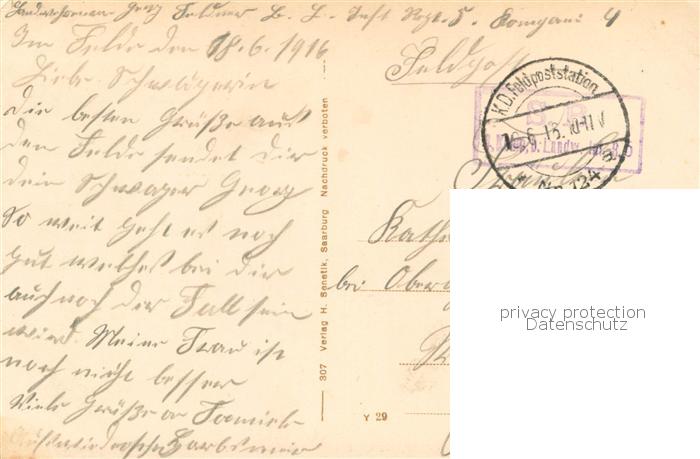 Landwehrmann Georg Feldner B. L. Inft Rgt. 5. Kompani 4
Im Felde den 18.6.1916
Liebe Schwägerin
Die besten Grüße aus
dem Felde sendet dir
dein Schwager Georg
So weit geht es noch
gut welches bei dir
auch noch der Fall sein
wird. Meine Frau ist
noch nicht besser
Viele Grüße an Familie
Auf wiedersehn
307 Verlag H. Senetik, Saarburg Nachdruck verboten
Y 29
Feldpost
K.D. Feldpoststation
No 124
S.B.
Landw.
Kath
bei Ober
privacy protection
Datenschutz